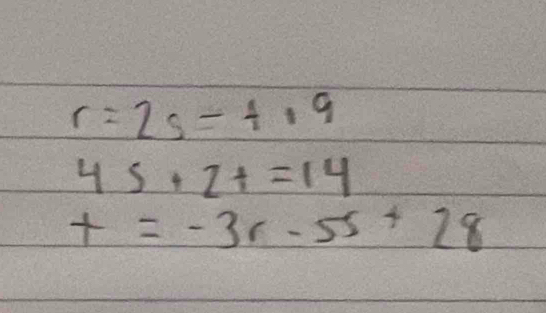 r = 2s - t + 9
4s + 2t = 14
t = -3r - 5s + 28